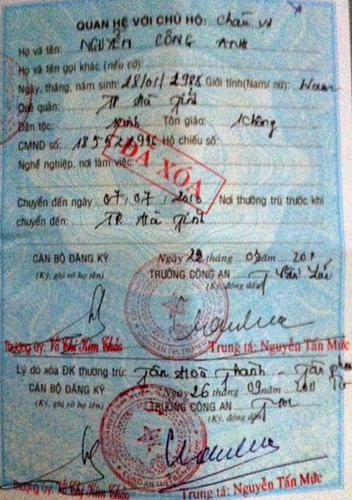 QUAN HỆ VỚI CHỦ HỘ: Cháu vợ
Họ và tên: NGUYỄN CÔNG ANH
Họ và tên gọi khác (nếu có):
Ngày, tháng, năm sinh: 28/01/1988 Giới tính(Nam/ nữ): Nam
Quê quán: TP Hà Tĩnh
Dân tộc: Kinh Tôn giáo: Không
CMND số: Hộ chiếu số:
Nghề nghiệp, nơi làm việc:
ĐÃ XÓA
Chuyển đến ngày 07/07/ Nơi thường trú trước khi
chuyển đến: TP. Hà Tĩnh
Ngày 22 tháng 07 năm
CÁN BỘ ĐĂNG KÝ TRƯỞNG CÔNG AN
(Ký, ghi rõ họ tên) (Ký, đóng dấu)
Thượng úy: Võ Thị Kim Thảo Trung tá: Nguyễn Tấn Mức
Lý do xóa ĐK thường trú: Tân Hoà Thành - Tân
CÁN BỘ ĐĂNG KÝ Ngày 26 tháng 09 năm
(Ký, ghi rõ họ tên) TRƯỞNG CÔNG AN
(Ký, đóng dấu)
Thượng úy: Võ Thị Kim Thảo Trung tá: Nguyễn Tấn Mức